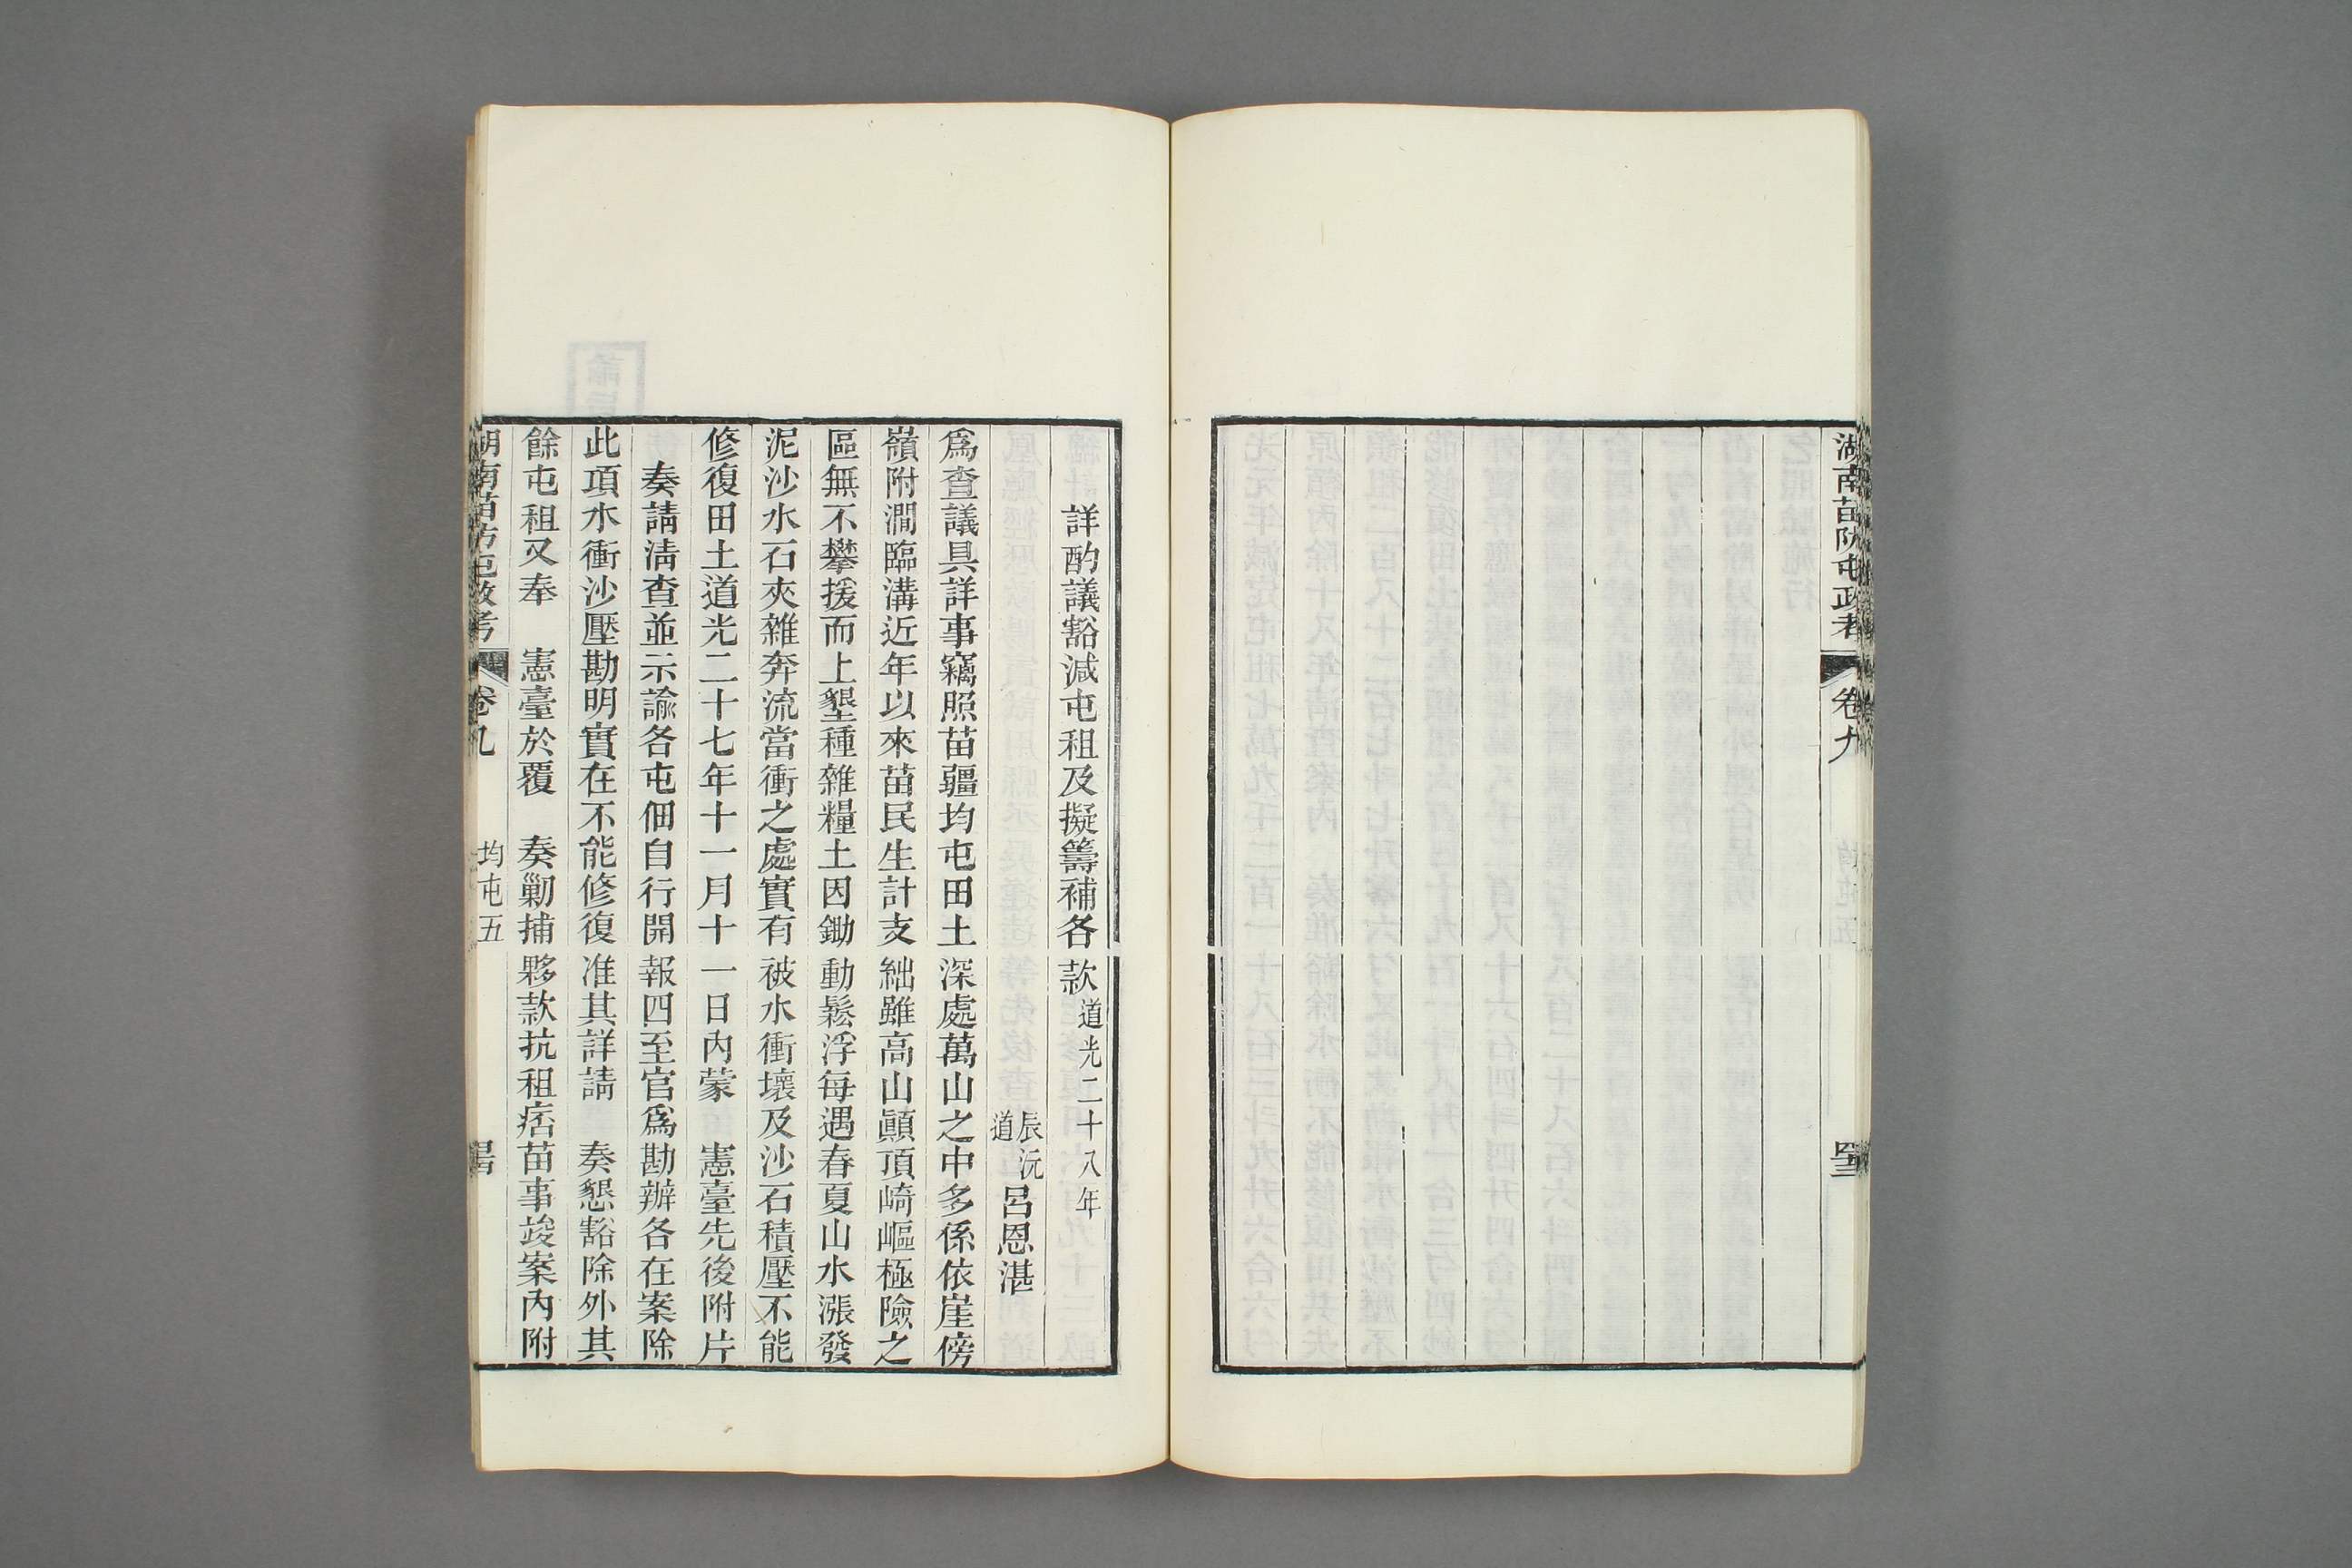 湖南苗防屯政考 卷九 四三
詳酌議豁減屯租及擬籌補各款道光二十八年
辰沅道呂恩湛
爲查議具詳事竊照苗疆均屯田土深處萬山之中多係依崖傍
嶺附澗臨溝近年以來苗民生計支絀雖高山顚頂崎嶇極險之
區無不攀援而上墾種雜糧土因鋤動鬆浮每遇春夏山水漲發
泥沙水石夾雜奔流當衝之處實有被水衝壞及沙石積壓不能
修復田土道光二十七年十一月十一日內蒙 憲臺先後附片
奏請淸查並示諭各屯佃自行開報四至官爲勘辦各在案除
此項水衝沙壓勘明實在不能修復准其詳請 奏懇豁除外其
餘屯租又奉 憲臺於覆 奏剿捕夥款抗租痞苗事竣案內附
湖南苗防屯政考 卷九 均屯五